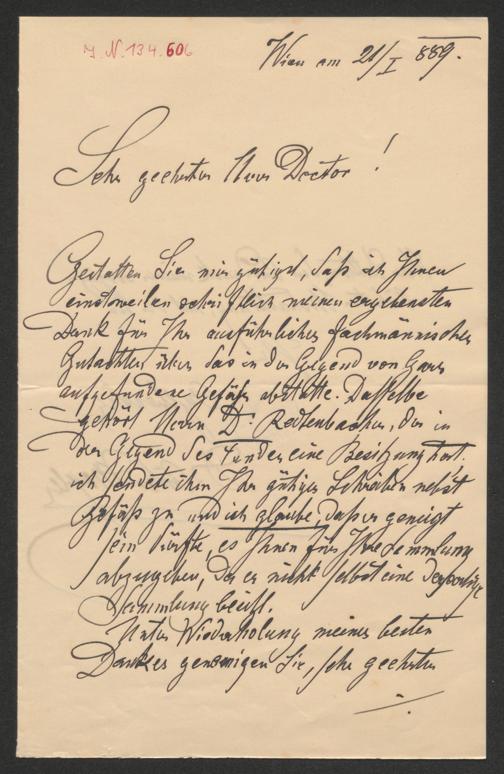 J. N. 134.606
Wien am 21/I 889.
Sehr geehrter Herr Doctor!
Gestatten Sie mir gütigst, daß ich Ihnen
einstweilen schriftlich meinen ergebensten
Dank für Ihr ausführliches fachmännisches
Gutachten über das in der Gegend von Gars
aufgefundene Gefäß abstatte. Dasselbe
gehört Herrn D. Redtenbacher, der in
der Gegend des Fundes eine Besitzung hat.
ich sendete ihm Ihr gütiges Schreiben nebst
Gefäß zu und ich glaube, daß er geneigt
sein dürfte, es Ihnen für Ihre Sammlung
abzugeben, da er nicht selbst eine derartige
Sammlung besitzt.
Unter Wiederholung meines besten
Dankes genemigen Sie, sehr geehrter